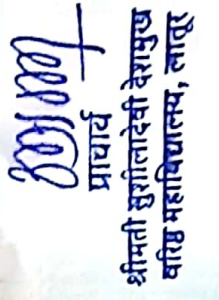 प्राचार्य
श्रीमती सुशीलादेवी देशमुख
वरिष्ठ महाविद्यालय, लातूर